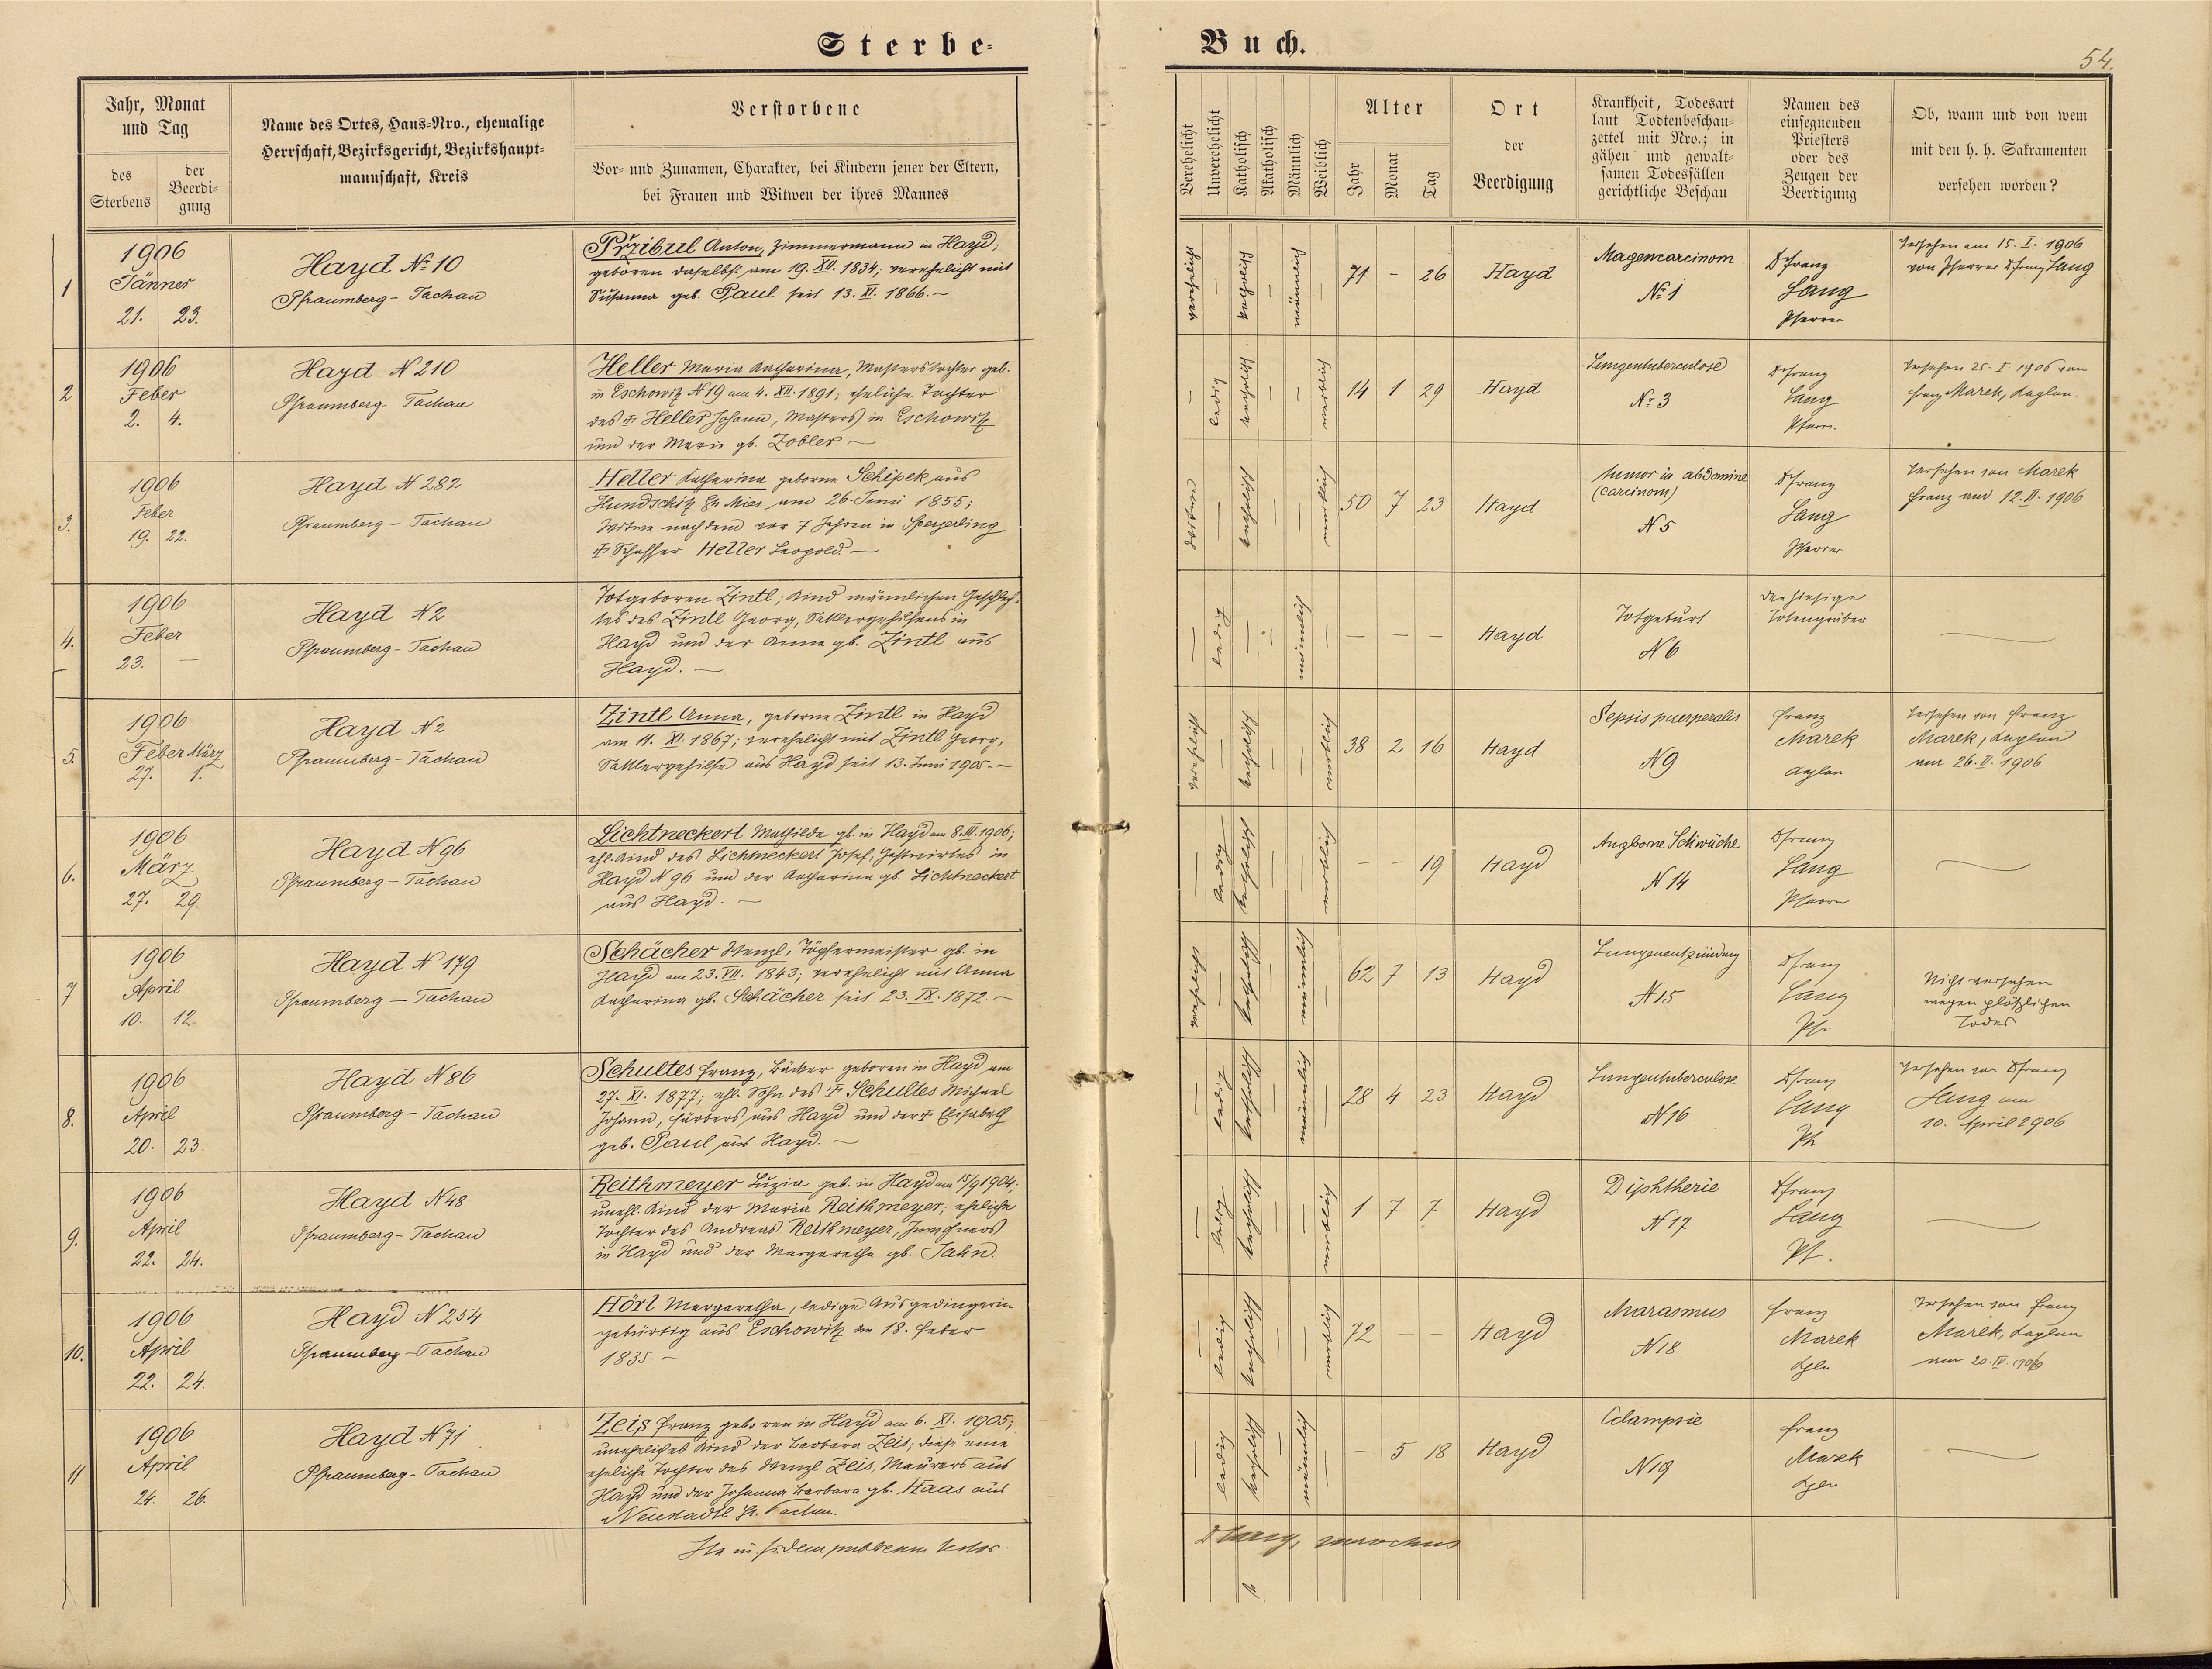 Sterbe-
Buch.
54.
Jahr, Monat und Tag
des Sterbens
der Beerdi-gung
Name des Ortes, Haus-Nro., ehemalige
Herrschaft, Bezirksgericht, Bezirkshaupt-
mannschaft, Kreis
Verstorbene
Vor- und Zunamen, Charakter, bei Kindern jener der Eltern,
bei Frauen und Witwen der ihres Mannes
Verehelicht
Unverehelicht
Katholisch
Akatholisch
Männlich
Weiblich
Alter
Jahr
Monat
Tag
Ort
der
Beerdigung
Krankheit, Todesart
laut Todtenbeschau-
zettel mit Nro.; in
gähen und gewalt-
samen Todesfällen
gerichtliche Beschau
Namen des
einsegnenden
Priesters
oder des
Zeugen der
Beerdigung
Ob, wann und von wem
mit den h. h. Sakramenten
versehen worden?
1
1906
Jänner
21. 23.
Hayd No 10
Pfraumberg - Tachau
Přzibul Anton, Zimmermann in Hayd;
geboren daselbst am 19. XII. 1834; verehelicht mit
Susanna geb. Paul seit 13. XI. 1866. –
verehelicht – katholisch – männlich –
71 – 26
Hayd
Magencarcinom
No 1
Franz
Lang
Pfarrer
Versehen am 15. I. 1906
von Pfarrer Franz Lang.
2
1906
Feber
2. 4.
Hayd N 210
Pfraumberg - Tachau
Heller Maria Katharina, geb.
in Eschowitz N 19 am 4. XII. 1891; eheliche Tochter
des † Heller Johann, in Eschowitz
und der Maria gb. Zobler –
– ledig katholisch – – weiblich
14 1 29
Hayd
Lungentuberculose
No 3
Franz
Lang
Pfarr.
Versehen 25. I 1906 von
Franz Marek, Kaplan.
3.
1906
Feber
19. 22.
Hayd N 282
Pfraumberg - Tachau
Heller Katharina geborne Schipek aus
Hundschitz Bz Mies am 26. Juni 1855;
Witwe nach dem vor 7 Jahren in Sperjeding
† Schaffer Heller Leopold. –
– katholisch – – weiblich
50 7 23
Hayd
Tumor in abdomine
(carcinom)
N 5
Franz
Lang
Pfarrer
Versehen von Marek
Franz am 12. II. 1906
4.
1906
Feber
23. –
Hayd N 2
Pfraumberg - Tachau
Totgeboren Zintl; Kind männlichen Geschlech-
tes des Zintl Georg, Sattlergehilfens in
Hayd und der Anna gb. Zintl aus
Hayd. –
– ledig – – männlich –
– – –
Hayd
Totgeburt
N 6
der hiesige
Totengräber
5.
1906
Feber März
27. 1.
Hayd N 2
Pfraumberg - Tachau
Zintl Anna, geborne Zintl in Hayd
am 11. XI. 1867; verehelicht mit Zintl Georg,
Sattlergehilfe aus Hayd seit 13. Juni 1905. –
verehelicht – katholisch – – weiblich
38 2 16
Hayd
Sepsis puerperalis
N 9
Franz
Marek
Kaplan
Versehen von Franz
Marek, Kaplan
am 26. II. 1906
6.
1906
März
27. 29.
Hayd N 96
Pfraumberg - Tachau
Lichtneckert Mathilde gb. in Hayd am 8. III. 1906;
ehl. Kind des Lichtneckert Josef, Gastwirtes in
Hayd N 96 und der Katharina gb. Lichtneckert
aus Hayd. –
– ledig katholisch – – weiblich
– – 19
Hayd
Angborne Schwäche
N 14
Franz
Lang
Pfarrer
7.
1906
April
10. 12.
Hayd N 179
Pfraumberg - Tachau
Schächer Wenzl, Töpfermeister gb. in
Hayd am 23. VII. 1843; verehelicht mit Anna
Katharina gb. Schächer seit 23. IX. 1872. –
verehelicht – katholisch – männlich –
62 7 13
Hayd
Lungenentzündung
N 15
Franz
Lang
Pfr
Nicht versehen
wegen plötzlichen
Todes
8.
1906
April
20. 23.
Hayd N 86
Pfraumberg - Tachau
Schultes Franz, Bäcker geboren in Hayd am
27. XI. 1877; ehl. Sohn des † Schultes Michael
Johann, Färbers aus Hayd und der † Elisabeth
geb. Paul aus Hayd. –
– ledig katholisch – männlich –
28 4 23
Hayd
Lungentuberculose
N 16
Franz
Lang
Pf
Versehen von Franz
Lang am
10. April 1906
9.
1906
April
22. 24.
Hayd N 48
Pfraumberg - Tachau
Reithmeyer Luzia geb. in Hayd am 15/9 1904;
unehl. Kind der Maria Reithmeyer; eheliche
Tochter des Andreas Reithmeyer,
in Hayd und der Margaretha gb. Jahn.
– ledig katholisch – – weiblich
1 7 7
Hayd
Diphtherie
N 17
Franz
Lang
Pf.
10.
1906
April
22. 24.
Hayd N 254
Pfraumberg - Tachau
Hörl Margaretha, ledige Ausgedingerin
gebürtig aus Eschowitz am 18. Feber
1835. –
– ledig katholisch – – weiblich
72 – –
Hayd
Marasmus
N 18
Franz
Marek
Kpln
Versehen von Franz
Marek, Kaplan
am 20. IV. 1906
11
1906
April
24. 26.
Hayd N 71
Pfraumberg - Tachau
Zeis Franz geboren in Hayd am 6. XI. 1905;
uneheliches Kind der Barbara Zeis; diese eine
eheliche Tochter des Wenzl Zeis, Maurers aus
Hayd und der Johanna Barbara gb. Haas aus
Neustadtl Bz. Tachau.
– ledig katholisch – männlich –
– 5 18
Hayd
Eclampsie
N 19
Franz
Marek
Kpln
Ita in fidem publicam testor.
Lang, parochus